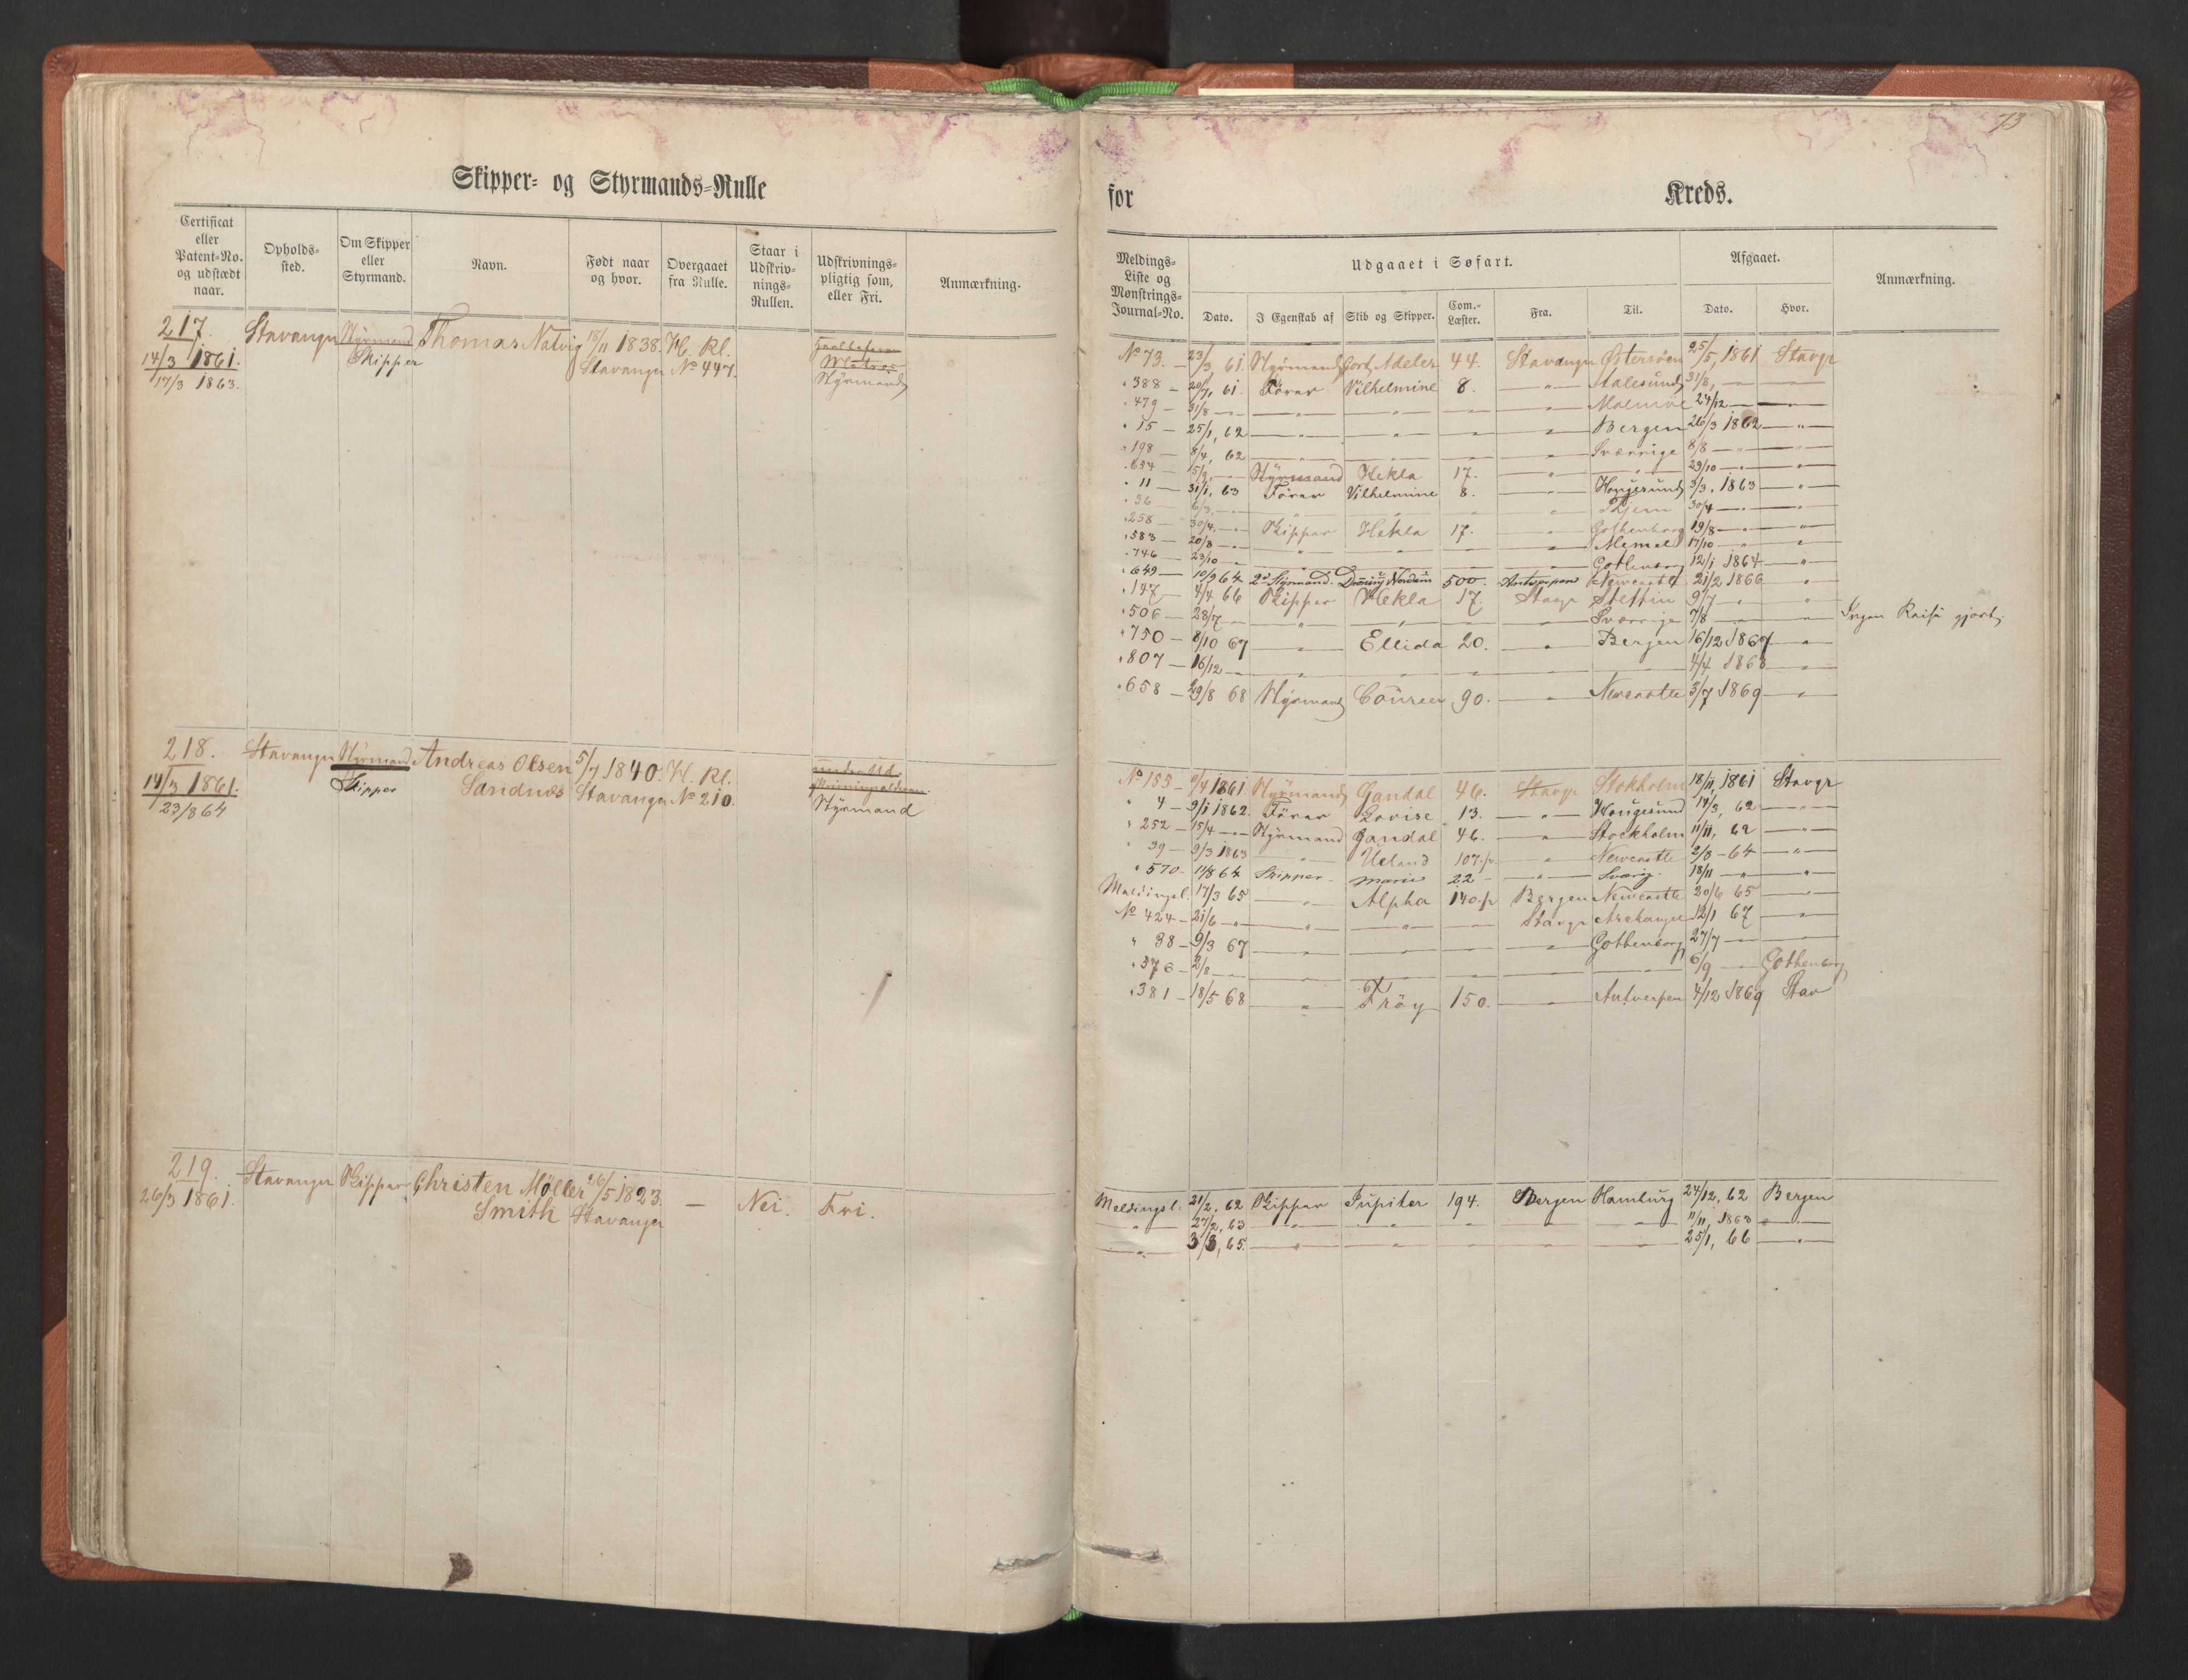 73
Skipper- og Styrmands-Rulle
for Kreds.
Certificat eller Patent-No. og udstædt naar.
Opholds-sted.
Om Skipper eller Styrmand.
Navn.
Født naar og hvor.
Overgaaet fra Rulle.
Staar i Udskriv-nings-Rullen.
Udskrivnings-pligtig som, eller Fri.
Anmærkning.
Meldings-Liste og Mønstrings-Journal-No.
Udgaaet i Søfart.
Dato.
I Egenskab af
Skib og Skipper.
Com.-Læster.
Fra.
Til.
Afgaaet.
Dato.
Hvor.
Anmærkning.
217. Stavanger Styrmand Thomas Natvig 18/11 1838. H. Kl.
14/3 1861. Skipper Stavanger No 447.
17/3 1863. Matros
Styrmand
No 73. 23/3, 61. Styrmand Cort Adeler 44. Stavanger Østersøen 25/5, 1861 Stavgr
" 388 20/7, 61. Fører Vilhelmine 8. " Aalesund 31/8, — —
" 479 — 31/8 — " — — — " Malmöe 24/12 — —
" 15 — 25/1, 62 — " — " — — " Bergen 26/3 1862 — " —
" 198 — 8/4, 62 — " — — — " Sverrige 8/8 — " —
" 654 — 5/9 — Styrmand Hekla 17. " " 29/10 — " —
" 11 — 31/1, 63 Fører Vilhelmine 8. — Haugesund 3/3, 1863 — " —
" 36 6/3 — " — " " " 30/4 — " —
" 258 — 30/4 — Skipper Hekla 17. " Gothenborg 19/8 — " —
" 583 — 20/8 — " — — " Memel 17/10 — " —
" 746 — 23/10 — — — — " Gothenborg 12/1 1864 — " —
" 649 — 10/9 64 2den Styrmand. 500. Antwerpen Newcastle 21/2 1866 "
" 147 — 4/4 66 Skipper Hekla 17. Stavgr Stettin 9/7 — "
" 506 — 28/7 — " — — — Sverrige 7/8 — " Ingen Reise gjort
" 750 — 8/10 67 — " Ellida 20. — " Bergen 16/12 1867 "
" 807 — 16/12 — " — " — — — 4/4 1868 — "
" 658 — 29/8 68 Styrmand Courier 90. — Newcastle 3/7 1869 — "
218. Stavanger Styrmand Andreas Olsen 5/7 1840. H. Kl.
14/3 1861. Skipper Sandnes Stavanger No 210.
23/8 64 Styrmand
No 155 — 9/4 1861 Styrmand Gandal 46. Stavgr Stokholm 18/11, 1861 Stavgr
" 4 — 9/1 1862. Fører Lovise 13. — " Haugesund 14/3, 62 — " —
" 252 — 15/4 — Styrmand Gandal 46. — " Stockholm 11/11, 62 — " —
" 39 — 9/3 1863 — " Ueland 107. " Newcastle 2/8 — 64 — " —
" 570 — 14/8 64 Skipper Marie 22 — " Sverig. 18/11 — " "
Meldingsl. 17/3 65 — " Alpha 140. Bergen Newcastle 20/6 65 — "
No 424 — 21/6 — " — " — — Stavgr Archangel 12/1 67 — "
" 38 — 9/3 67 — — — — " Gothenborg 27/7 — —
" 376 — 2/8 — — — — — — 6/9 — Gothenborg
" 381 — 18/5 68 — " Frøy 150. — Antverpen 4/12 1869 Stav
219. Stavanger Skipper Christen Møller 26/5 1823. — Nei. Fri.
26/3 1861. Smith Stavanger
Meldingsl. 21/2, 62 Skipper Jupiter 194. Bergen Hamburg 24/12, 62 Bergen
— " — 27/2, 63 — " — " — — — " 11/11, 1863 — " —
— " — 3/3, 65. — " — " — " — " — 25/1, 66 — " —